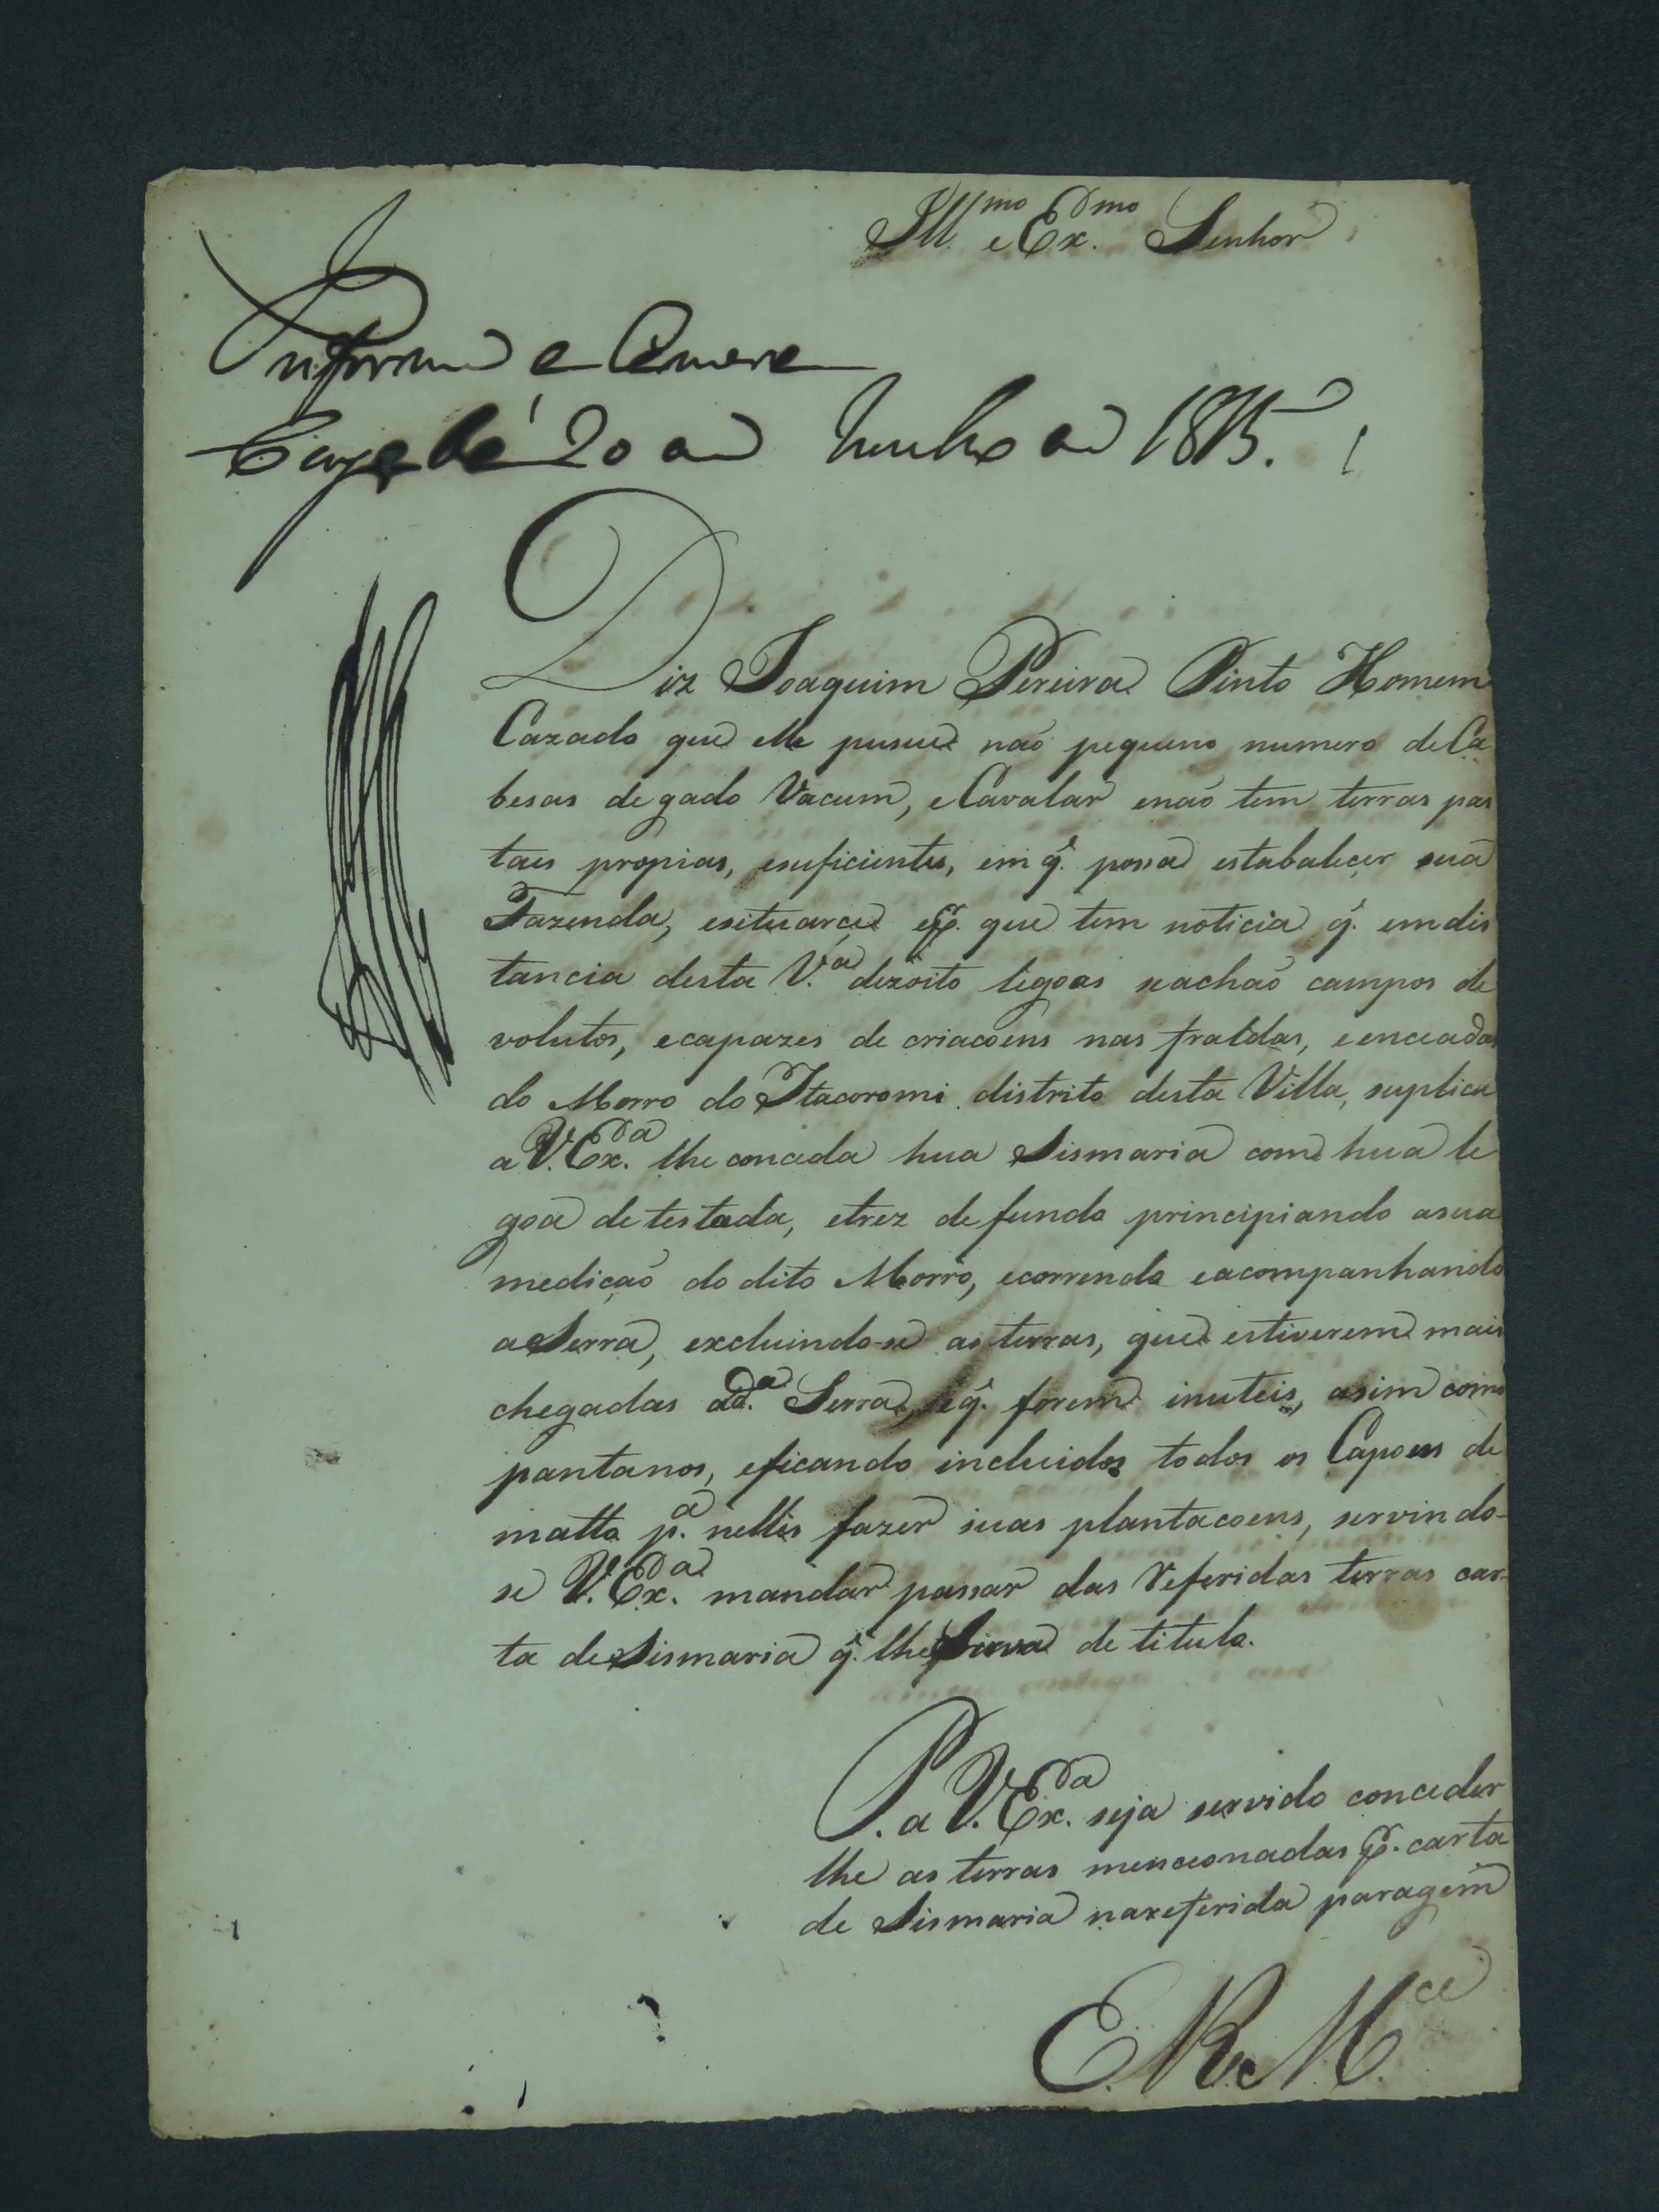 Ill.mo e Ex.mo Senhor
Informe a Camera
Cuyabá 20 de Junho de 1815.
Diz Joaquim Pereira Pinto Homem
Cazado que elle pusue não pequeno numero de Ca
besas de gado Vacum, e Cavalar enaõ tem terras pas
taes propias, esuficientes, em q̃. possa estabalecer sua
Fazenda, esituarçe e p.r que tem noticia q̃. em dis
tancia desta V.a dezoito legoas seachaõ campos de
volutos, ecapazes de criacoens nas fraldas, e enceadas
do Morro do Itacoromi distrito desta Villa, suplica
a V. Ex.a lhe conceda hua Sismaria com hua le
goa de testada, etrez de fundo principiando asua
mediçaõ do dito Morro, ecorrendo eacompanhando
a Serra, excluindo-se as terras, que estiverem mais
chegadas a d.a Serra, e q̃. forem inuteis, asim como
pantanos, eficando incluidos todos os Capoens de
matto p.a nelles fazer suas plantacoens, servindo-
se V. Ex.a mandar passar das Referidas terras car-
ta de Sismaria q̃. lhe Sirva de titulo.
P. a V. Ex.a seja servido conceder
lhe as terras mencionadas p.r carta
de Sismaria nareferida paragem
E. R. M.ce